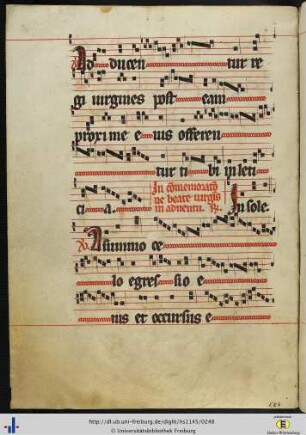 Ad ducen tur re
gi uirgines post eam
proxime e ius offeren
tur ti bi in leti
cia. In cōmemoratō
ne beate uirgīs
in aduentu. In sole.
A summo ce
lo egres sio e
ius et occursus e
http://dl.ub.uni-freiburg.de/diglit/hs1145/0248
© Universitätsbibliothek Freiburg